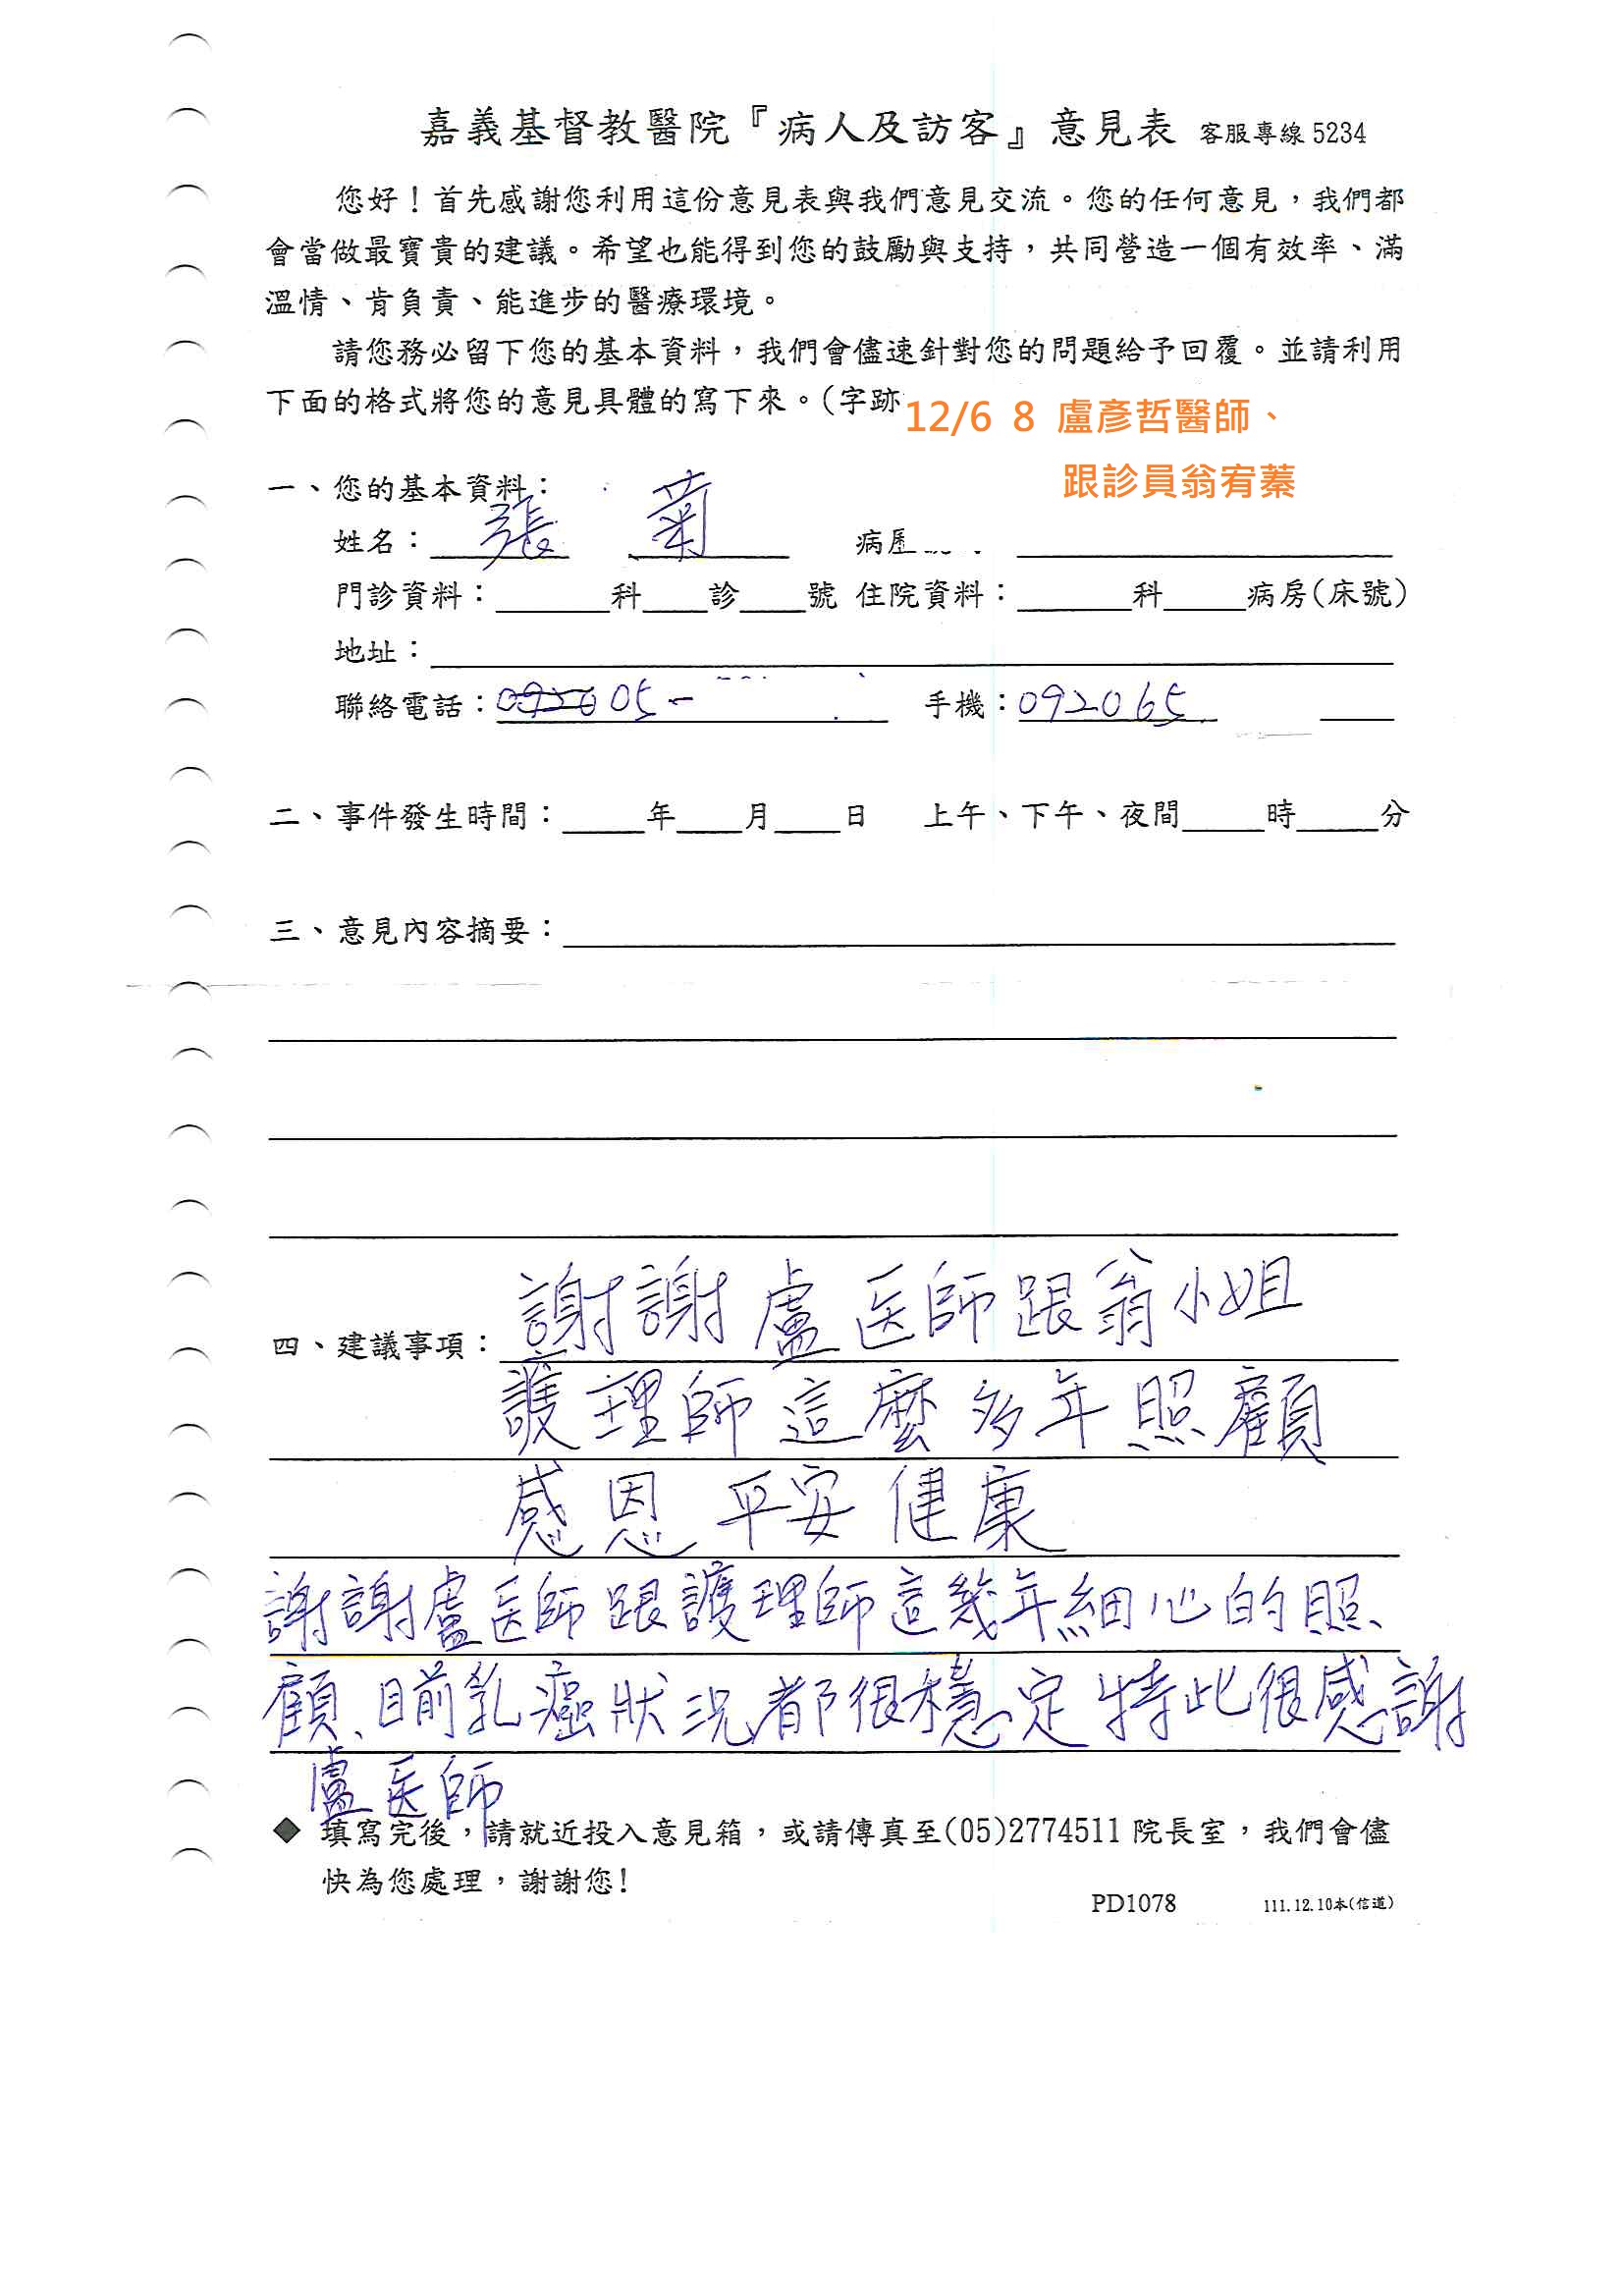 嘉義基督教醫院『病人及訪客』意見表 客服專線 5234
您好！首先感謝您利用這份意見表與我們意見交流。您的任何意見，我們都
會當做最寶貴的建議。希望也能得到您的鼓勵與支持，共同營造一個有效率、滿
溫情、肯負責、能進步的醫療環境。
請您務必留下您的基本資料，我們會儘速針對您的問題給予回覆。並請利用
下面的格式將您的意見具體的寫下來。(字跡
12/6 8 盧彥哲醫師、
跟診員翁宥蓁
一、您的基本資料：
姓名：張 菊 病歷
門診資料：____科____診____號 住院資料：____科____病房(床號)
地址：
聯絡電話：0920 05- 手機：092065
二、事件發生時間：____年____月____日 上午、下午、夜間____時____分
三、意見內容摘要：
四、建議事項：謝謝盧医師跟翁小姐
護理師這麼多年照顧
感恩 平安健康
謝謝盧医師跟護理師這幾年細心的照、
顧、目前乳癌狀況都很穩定特此很感謝
盧医師
◆ 填寫完後，請就近投入意見箱，或請傳真至(05)2774511 院長室，我們會儘
快為您處理，謝謝您!
PD1078 111.12.10本(信道)